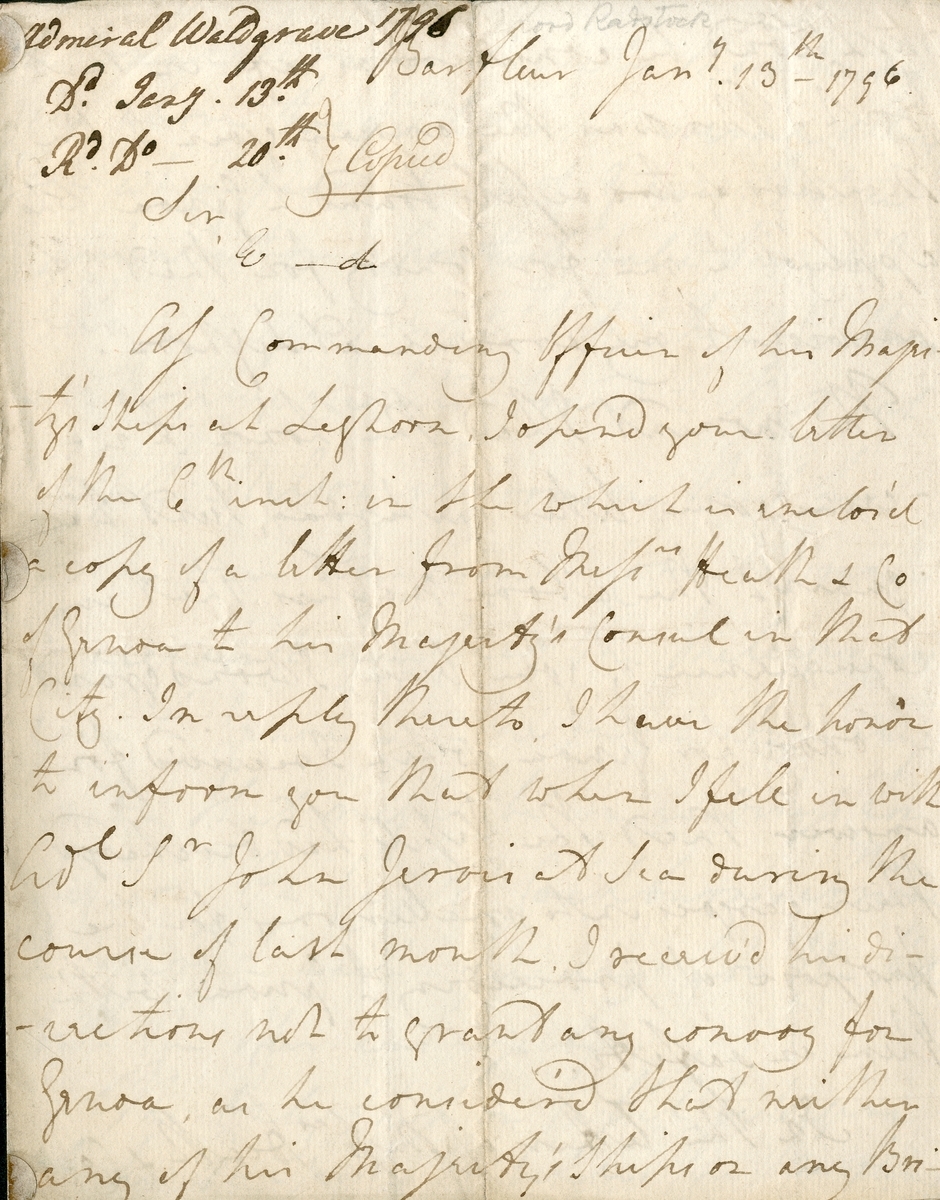 Lord Radstock
Admiral Waldgrave 1796
Barfleur Jan.y 13th - 1796.
Dd. Jany. 13th
Rd. Do — 20th } Copied
Sir
As Commanding Officer of his Maje-
-ty's Ships at Leghorn, I open'd your letter
of the 6th inst: in the which is inclos'd
a copy of a letter from Messrs Heath & Co
of Genoa to his Majesty's Consul in that
City. In reply thereto I have the honor
to inform you that when I fell in with
Adl Sr John Jervis at Sea during the
course of last month, I receiv'd his di-
-rections not to grant any convoy for
Genoa, as he consider'd that neither
any of his Majesty's Ships or any Bri-